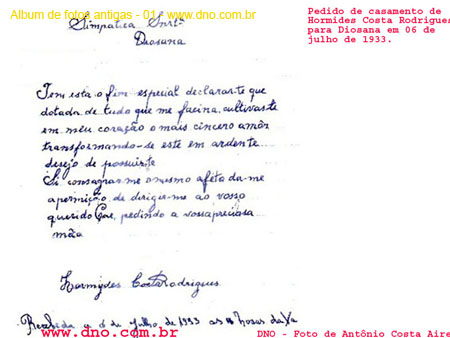 Album de fotos antigas - 01 - www.dno.com.br
Pedido de casamento de
Hormides Costa Rodrigues
para Diosana em 06 de
julho de 1933.
Simpatica Snrtª
Diosana
Tem esta o fim especial declararte que
dotada de tudo que me facina, cultivaste
em meu coração o mais cincero amôr
transformando-se este em ardente
desejo de possuirte
Si consagrar-me o mesmo afeto da-me
a permição de dirigir-me ao vosso
querido Pae, pedindo a vossa preciosa
mão
Hormydes Costa Rodrigues
Recebida a 6 de Julho de 1933 as horas da
www.dno.com.br
DNO - Foto de Antônio Costa Aire